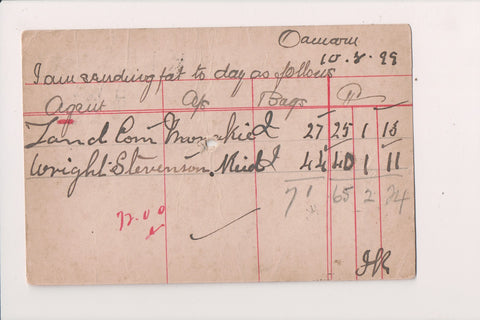 Oamaru
10.8.99
I am sending fat to day as follows
Agent Bags
Land Com 27 25 1 13
Wright Stevenson. Mixed 44 40 1 11
71 65 2 24
12.00